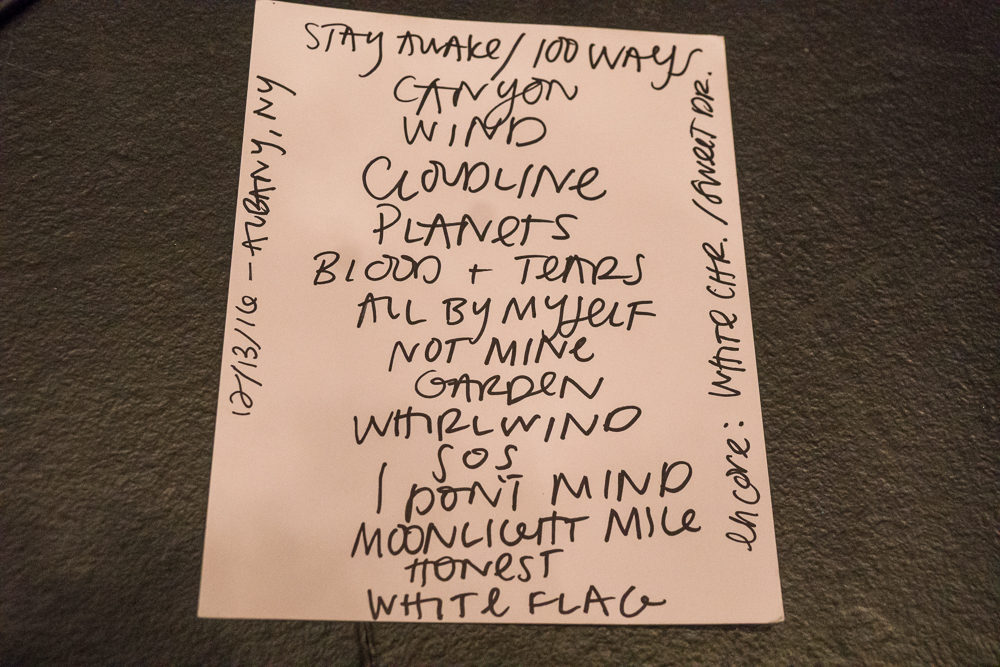 STAY AWAKE / 100 WAYS
CANYON
WIND
CLOUDLINE
PLANETS
BLOOD + TEARS
ALL BY MYSELF
NOT MINE
GARDEN
WHIRLWIND
SOS
I DON'T MIND
MOONLIGHT MILE
HONEST
WHITE FLAG
12/13/16 - ALBANY, NY
encore: WHITE CHR. / SWEET DR.